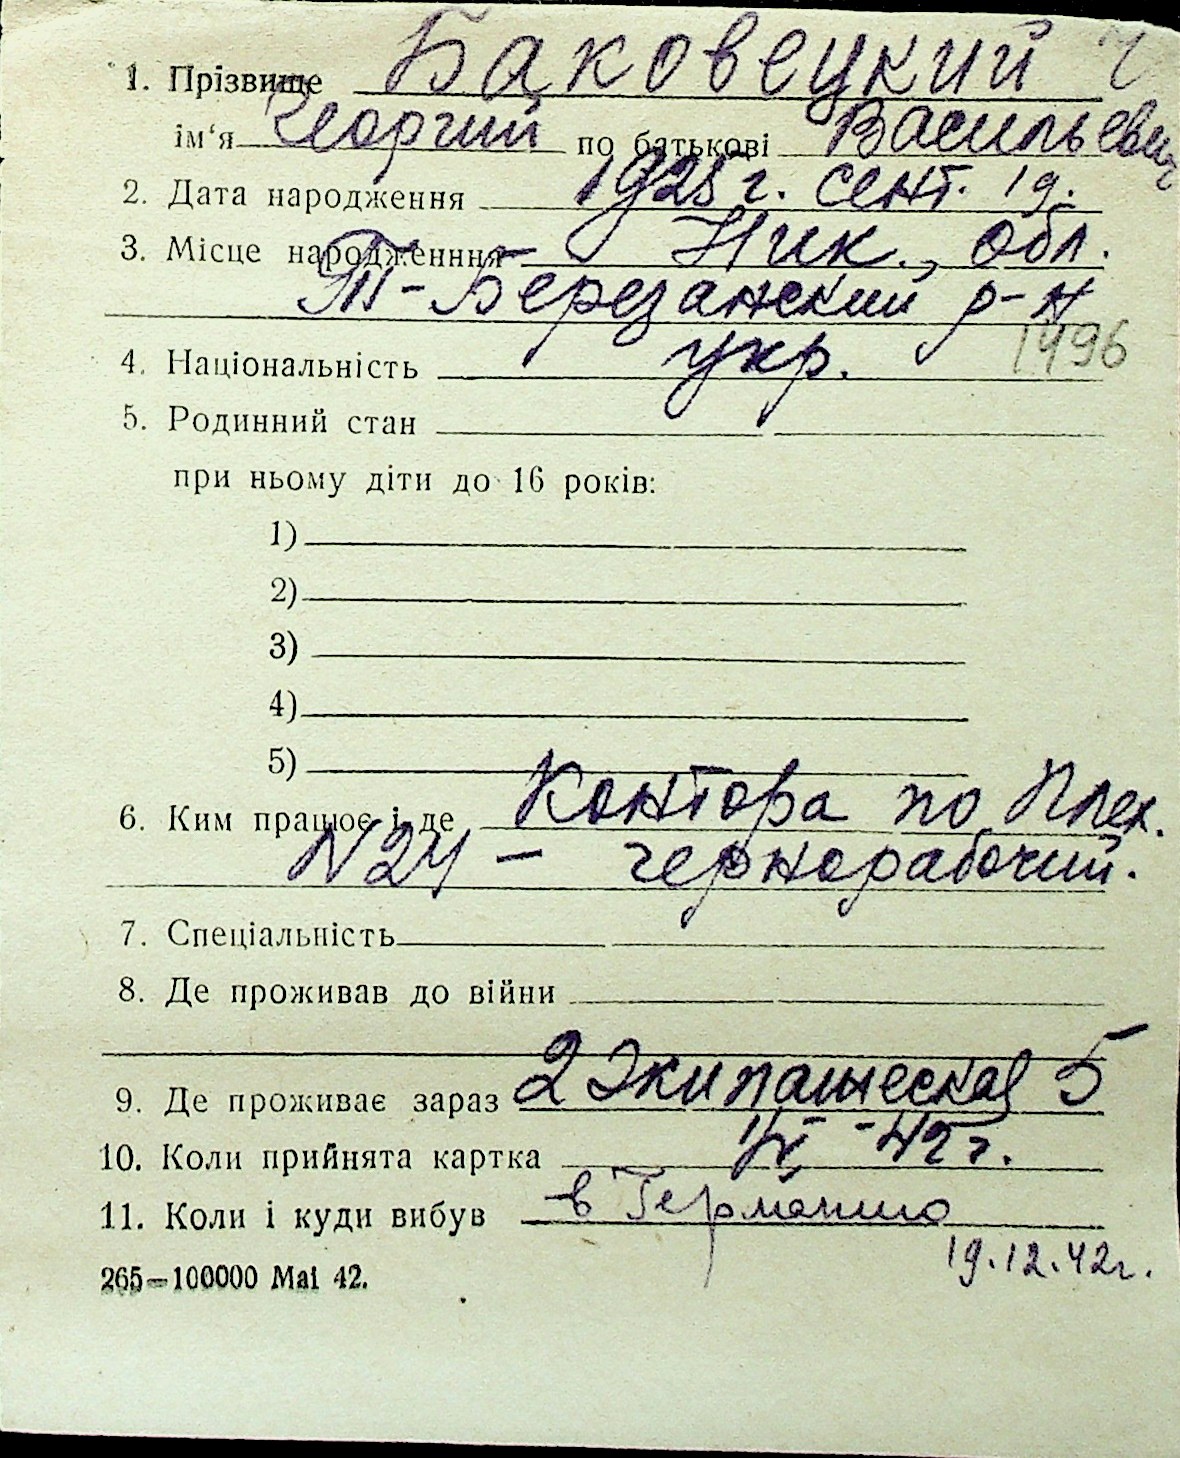 1. Прізвище Баковецкий
ім‘я Георгий по батькові Васильевич
2. Дата народження 1925 г. сент. 19.
3. Місце народженння Ник., обл.
Т-Березанский р-н
1496
4. Національність укр.
5. Родинний стан
при ньому діти до 16 років:
1)
2)
3)
4)
5)
6. Ким працює і де Контора по Плех.
N24 – чернорабочий.
7. Спеціальність
8. Де проживав до війни
9. Де проживає зараз 2 Экипашеская 5
10. Коли прийнята картка -42 г.
11. Коли і куди вибув в Германию
19.12.42г.
265–100000 Mai 42.